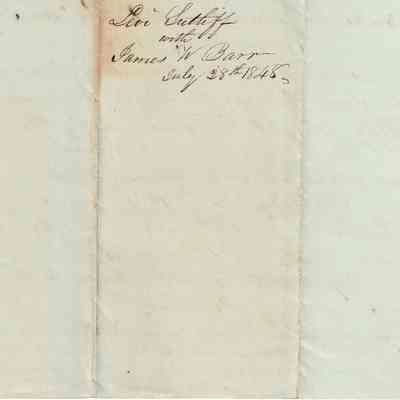 Levi Sutliff
with
James W Barr
July 28th 1848